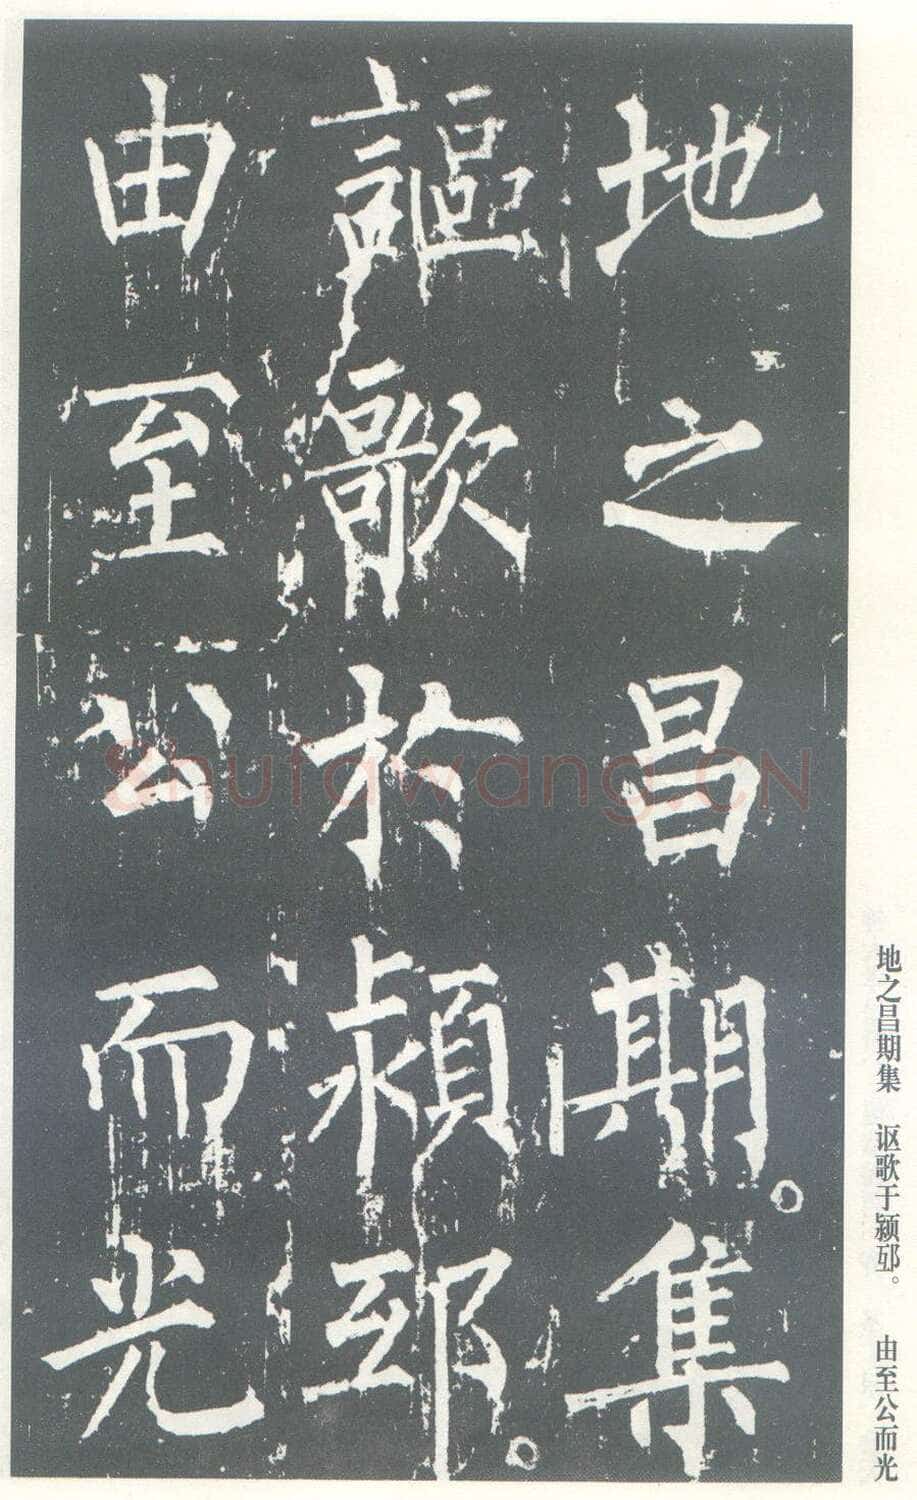 地之昌期。集
謳歌於潁邳。
由至公而光
地之昌期集　讴歌于颍邳。　由至公而光
Shufawang.CN